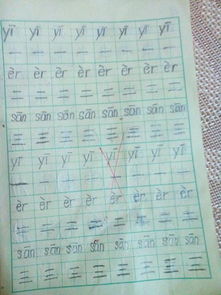 yī yī yī yī yī yī yī yī
一 一 一 一 一 一 一 一
èr èr èr èr èr èr èr èr
二 二 二 二 二 二 二 二
sān sān sān sān sān sān sān sān
三 三 三 三 三 三 三 三
yī yī yī yī yī yī yī yī
一 一 一 一 一 一 一
èr èr èr èr èr èr èr èr
二 二 二 二 二 二 二
sān sān sān sān sān sān sān sān
三 三 三 三 三 三 三 三